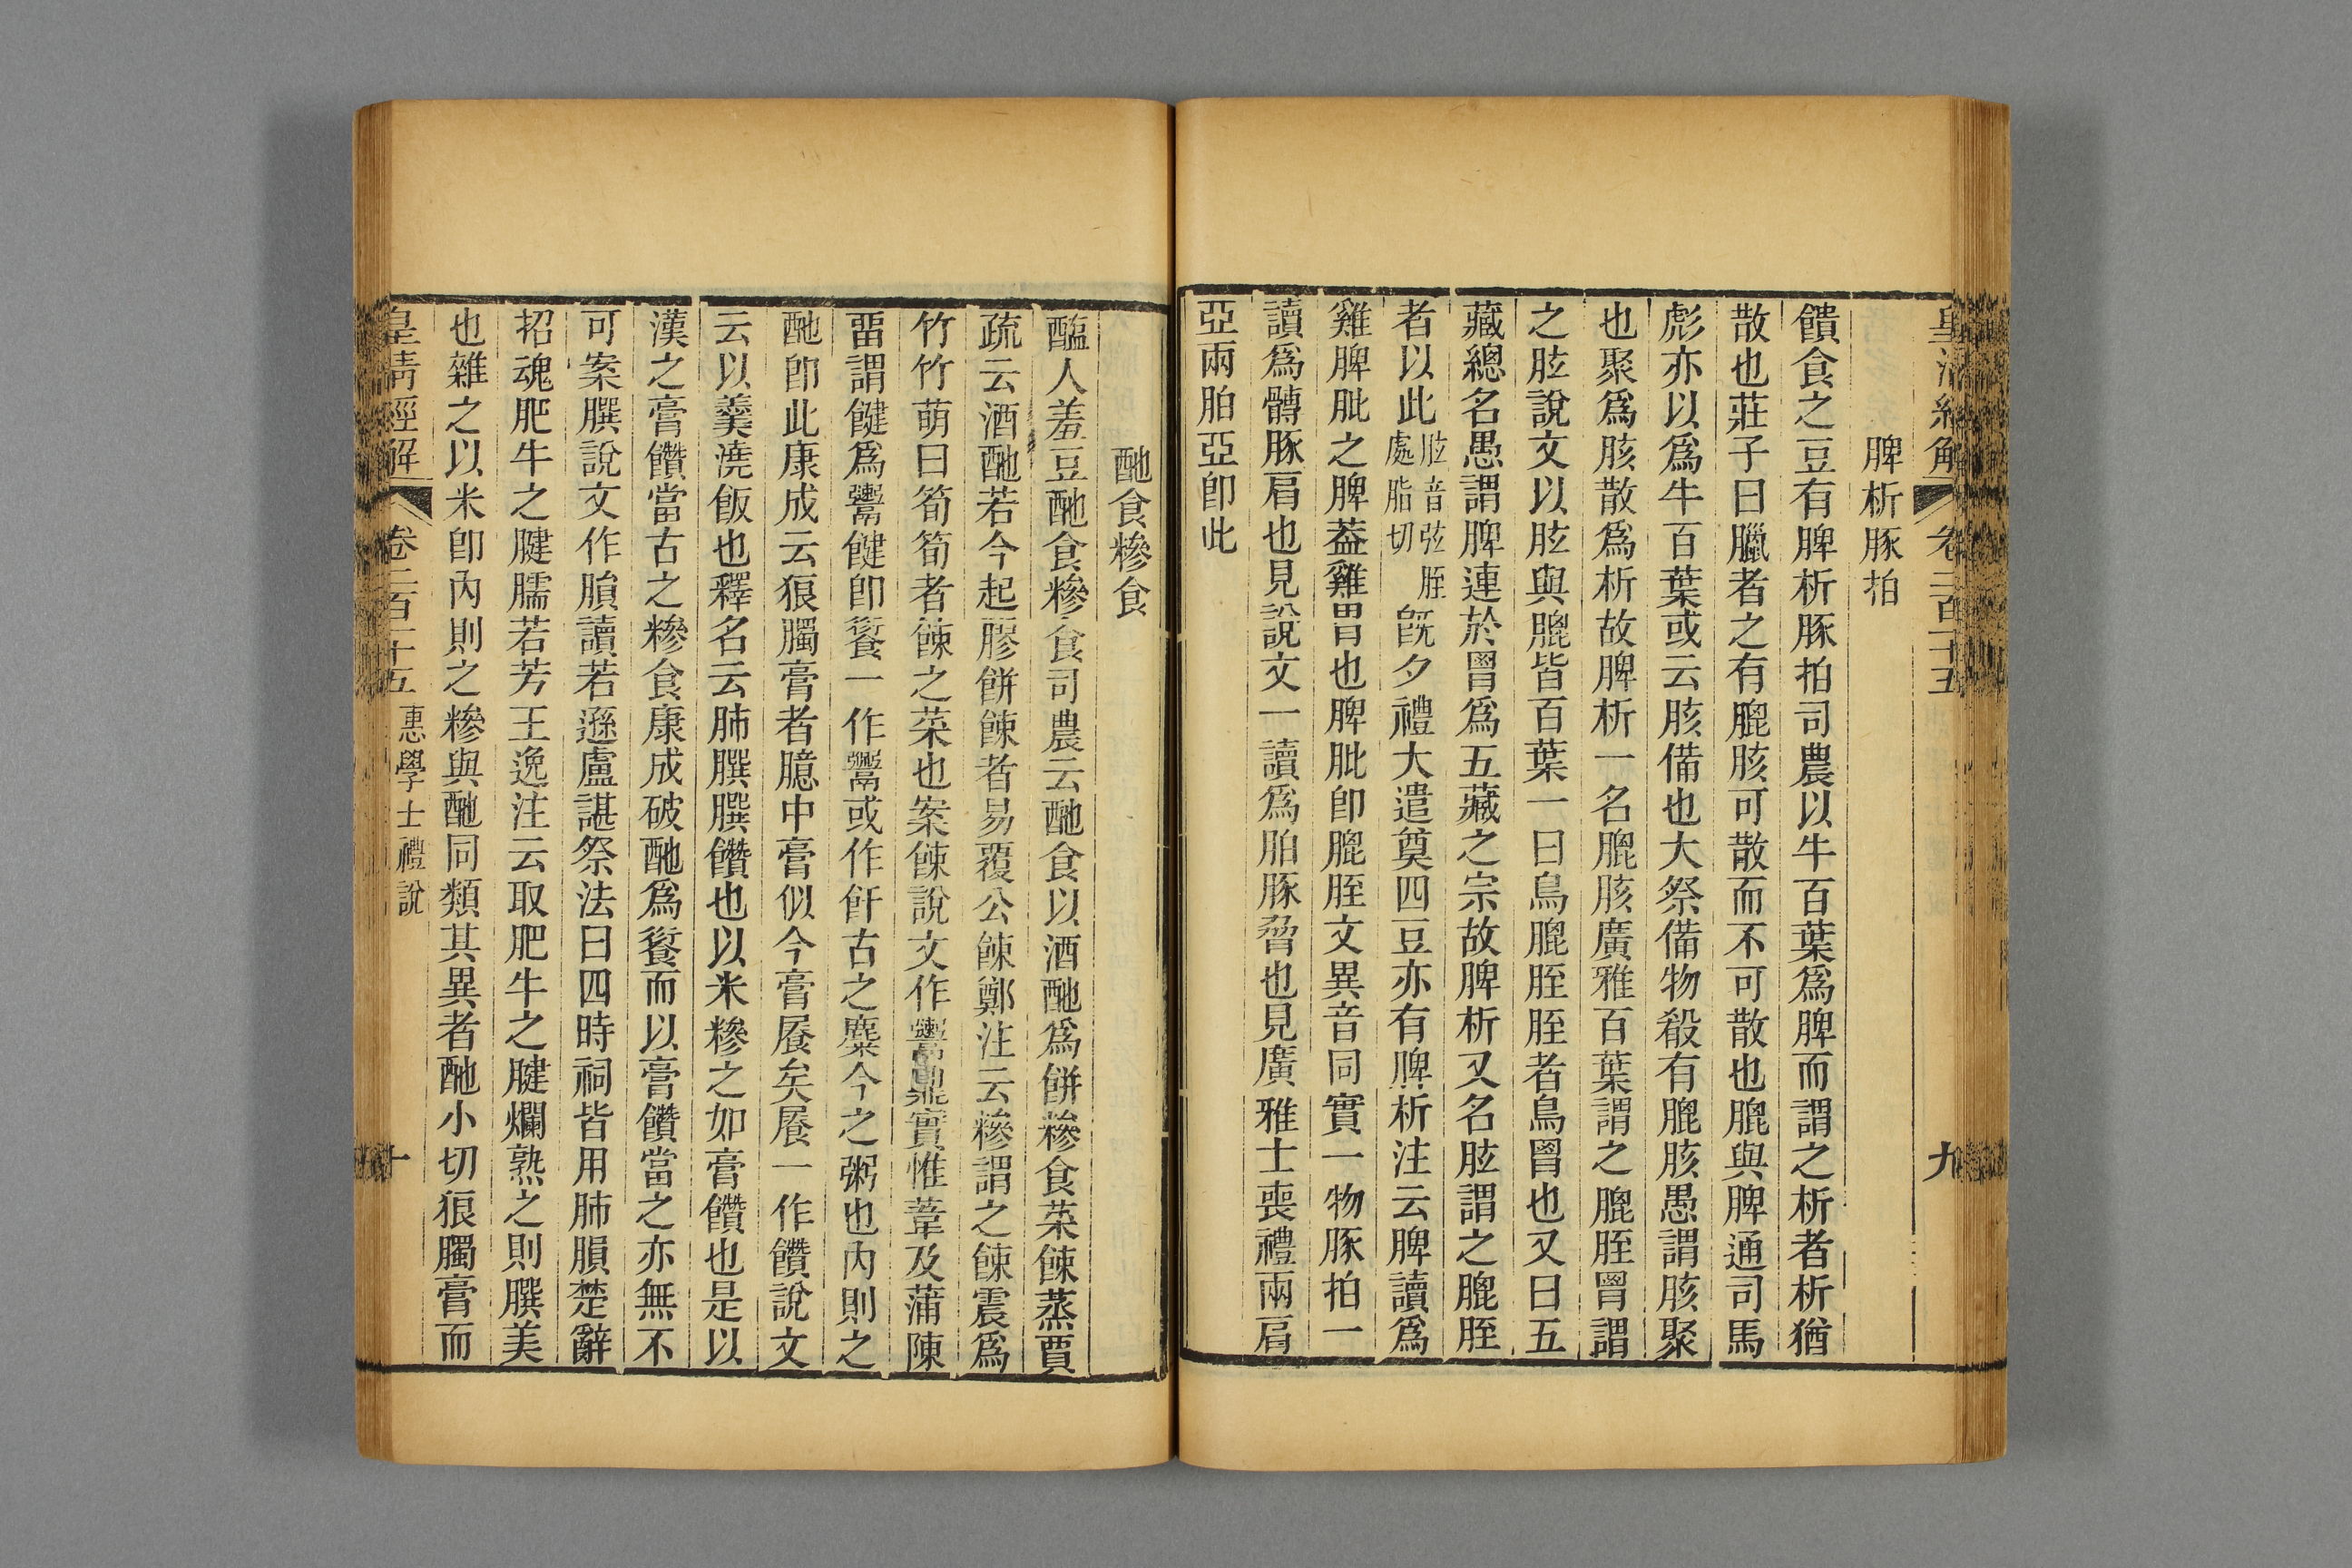 皇清經解
卷二百十五
九
脾析豚拍
饋食之豆有脾析豚拍司農以牛百葉爲脾而謂之析者析猶
散也莊子曰臘者之有膍胲可散而不可散也膍與脾通司馬
彪亦以爲牛百葉或云胲備也大祭備物殽有膍胲愚謂胲聚
也聚爲胲散爲析故脾析一名膍胲廣雅百葉謂之膍胵胃謂
之胘說文以胘與膍皆百葉一曰鳥膍胵胵者鳥胃也又曰五
藏總名愚謂脾連於胃爲五藏之宗故脾析又名胘謂之膍胵
者以此胘音弦胵處脂切旣夕禮大遣奠四豆亦有脾析注云脾讀爲
雞脾肶之脾葢雞胃也脾肶卽膍胵文異音同實一物豚拍一
讀爲髆豚肩也見說文一讀爲胉豚脅也見廣雅士喪禮兩肩
亞兩胉亞卽此
酏食糝食
醢人羞豆酏食糝食司農云酏食以酒酏爲餠糝食菜餗蒸賈
疏云酒酏若今起膠餠餗者易覆公餗鄭注云糝謂之餗震爲
竹竹萌曰筍筍者餗之菜也案餗說文作鬻鼎實惟葦及蒲陳
畱謂鍵爲鬻鍵卽餰一作鬻或作飦古之麋今之粥也內則之
酏卽此康成云狼臅膏者臆中膏似今膏𩜾矣𩜾一作饡說文
云以羹澆飯也釋名云肺䐹䐹饡也以米糝之如膏饡也是以
漢之膏饡當古之糝食康成破酏爲餰而以膏饡當之亦無不
可案䐹說文作膹讀若遜盧諶祭法曰四時祠皆用肺䐹楚辭
招魂肥牛之腱臑若芳王逸注云取肥牛之腱爛熟之則䐹美
也雜之以米卽內則之糝與酏同類其異者酏小切狼臅膏而
皇清經解
卷二百十五
惠學士禮說
十